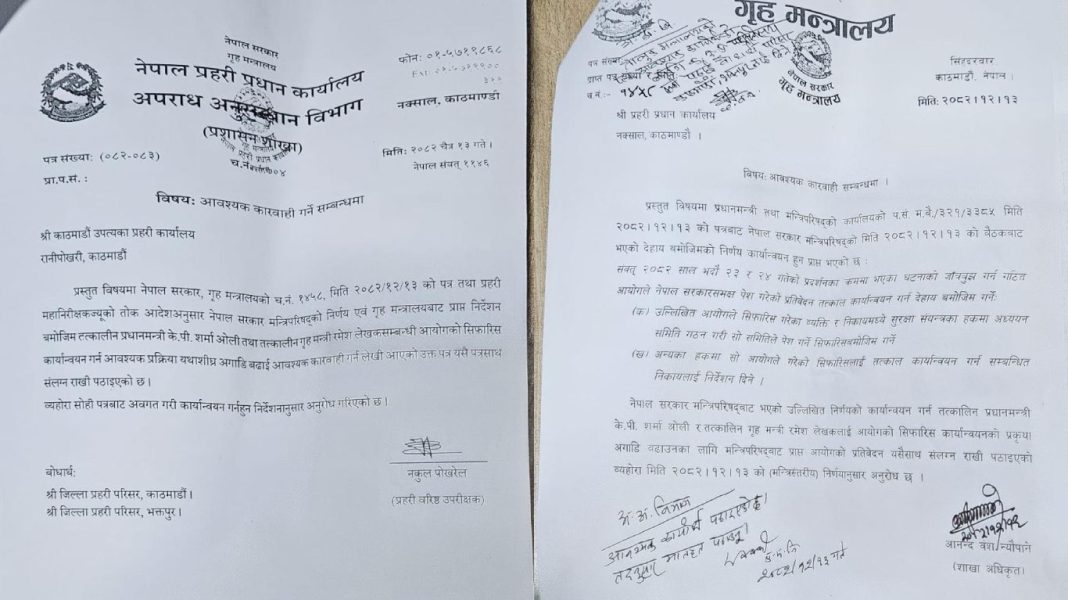 नेपाल सरकार
गृह मन्त्रालय
नेपाल प्रहरी प्रधान कार्यालय
अपराध अनुसन्धान विभाग
(प्रशासन शाखा)
फोन: ०१-५७१९८६८
नक्साल, काठमाण्डौ
पत्र संख्याः (०८२-०८३)
च.नं.
मितिः २०८२ चैत्र १३ गते ।
प्रा.प.सं. :
नेपाल संवत् ११४६
विषयः आवश्यक कारवाही गर्ने सम्बन्धमा
श्री काठमाडौं उपत्यका प्रहरी कार्यालय
रानीपोखरी, काठमाडौं
प्रस्तुत विषयमा नेपाल सरकार, गृह मन्त्रालयको च.नं. १४५८, मिति २०८२/१२/१३ को पत्र तथा प्रहरी
महानिरीक्षकज्यूको तोक आदेशअनुसार नेपाल सरकार मन्त्रिपरिषद्को निर्णय एवं गृह मन्त्रालयबाट प्राप्त निर्देशन
बमोजिम तत्कालिन प्रधानमन्त्री के.पी. शर्मा ओली तथा तत्कालीन गृह मन्त्री रमेश लेखकसम्बन्धी आयोगको सिफारिस
कार्यान्वयन गर्न आवश्यक प्रक्रिया यथाशीघ्र अगाडि बढाई आवश्यक कारवाही गर्न लेखी आएको उक्त पत्र यसै पत्रसाथ
संलग्न राखी पठाइएको छ ।
व्यहोरा सोही पत्रबाट अवगत गरी कार्यान्वयन गर्नहुन निर्देशनानुसार अनुरोध गरिएको छ ।
नकुल पोखरेल
(प्रहरी वरिष्ठ उपरीक्षक)
बोधार्थः
श्री जिल्ला प्रहरी परिसर, काठमाडौं ।
श्री जिल्ला प्रहरी परिसर, भक्तपुर ।
गृह मन्त्रालय
नेपाल सरकार
गृह मन्त्रालय
सिंहदरवार
काठमाडौं, नेपाल ।
मितिः २०८२।१२।१३
पत्र संख्या
च.नं.:- १४५८
श्री प्रहरी प्रधान कार्यालय
नक्साल, काठमाण्डौ ।
विषयः आवश्यक कारवाही सम्बन्धमा ।
प्रस्तुत विषयमा प्रधानमन्त्री तथा मन्त्रिपरिषद्को कार्यालयको प.सं म.बै./३२१/३३८५ मिति
२०८२।१२।१३ को पत्रबाट नेपाल सरकार मन्त्रिपरिषद्को मिति २०८२।१२।१३ को बैठकबाट
भएको देहाय बमोजिमको निर्णय कार्यान्वयन हुन प्राप्त भएको छ :
संवत् २०८२ साल भदौ २३ र २४ गतेको प्रदर्शनका क्रममा भएका घटनाको जाँचवुझ गर्न गठित
आयोगले नेपाल सरकारसमक्ष पेश गरेको प्रतिवेदन तत्काल कार्यान्वयन गर्न देहाय बमोजिम गर्नेः
(क) उल्लिखित आयोगले सिफारिस गरेका व्यक्ति र निकायमध्ये सुरक्षा संयन्त्रका हकमा अध्ययन
समिति गठन गरी सो समितिले पेश गर्ने सिफारिसबमोजिम गर्ने
(ख) अन्यका हकमा सो आयोगले गरेको सिफारिसलाई तत्काल कार्यान्वयन गर्न सम्बन्धित
निकायलाई निर्देशन दिने ।
नेपाल सरकार मन्त्रिपरिषद्बाट भएको उल्लिखित निर्णयको कार्यान्वयन गर्न तत्कालिन प्रधानमन्त्री
के.पी. शर्मा ओली र तत्कालिन गृह मन्त्री रमेश लेखकलाई आयोगको सिफारिस कार्यान्वयनको प्रकृया
अगाडि वढाउनका लागि मन्त्रिपरिषद्बाट प्राप्त आयोगको प्रतिवेदन यसैसाथ संलग्न राखी पठाइएको
व्यहोरा मिति २०८२।१२।१३ को (मन्त्रिस्तरीय) निर्णयानुसार अनुरोध छ ।
अ.अ. विभाग
२०८२/१२/१३ गते
(शाखा अधिकृत)